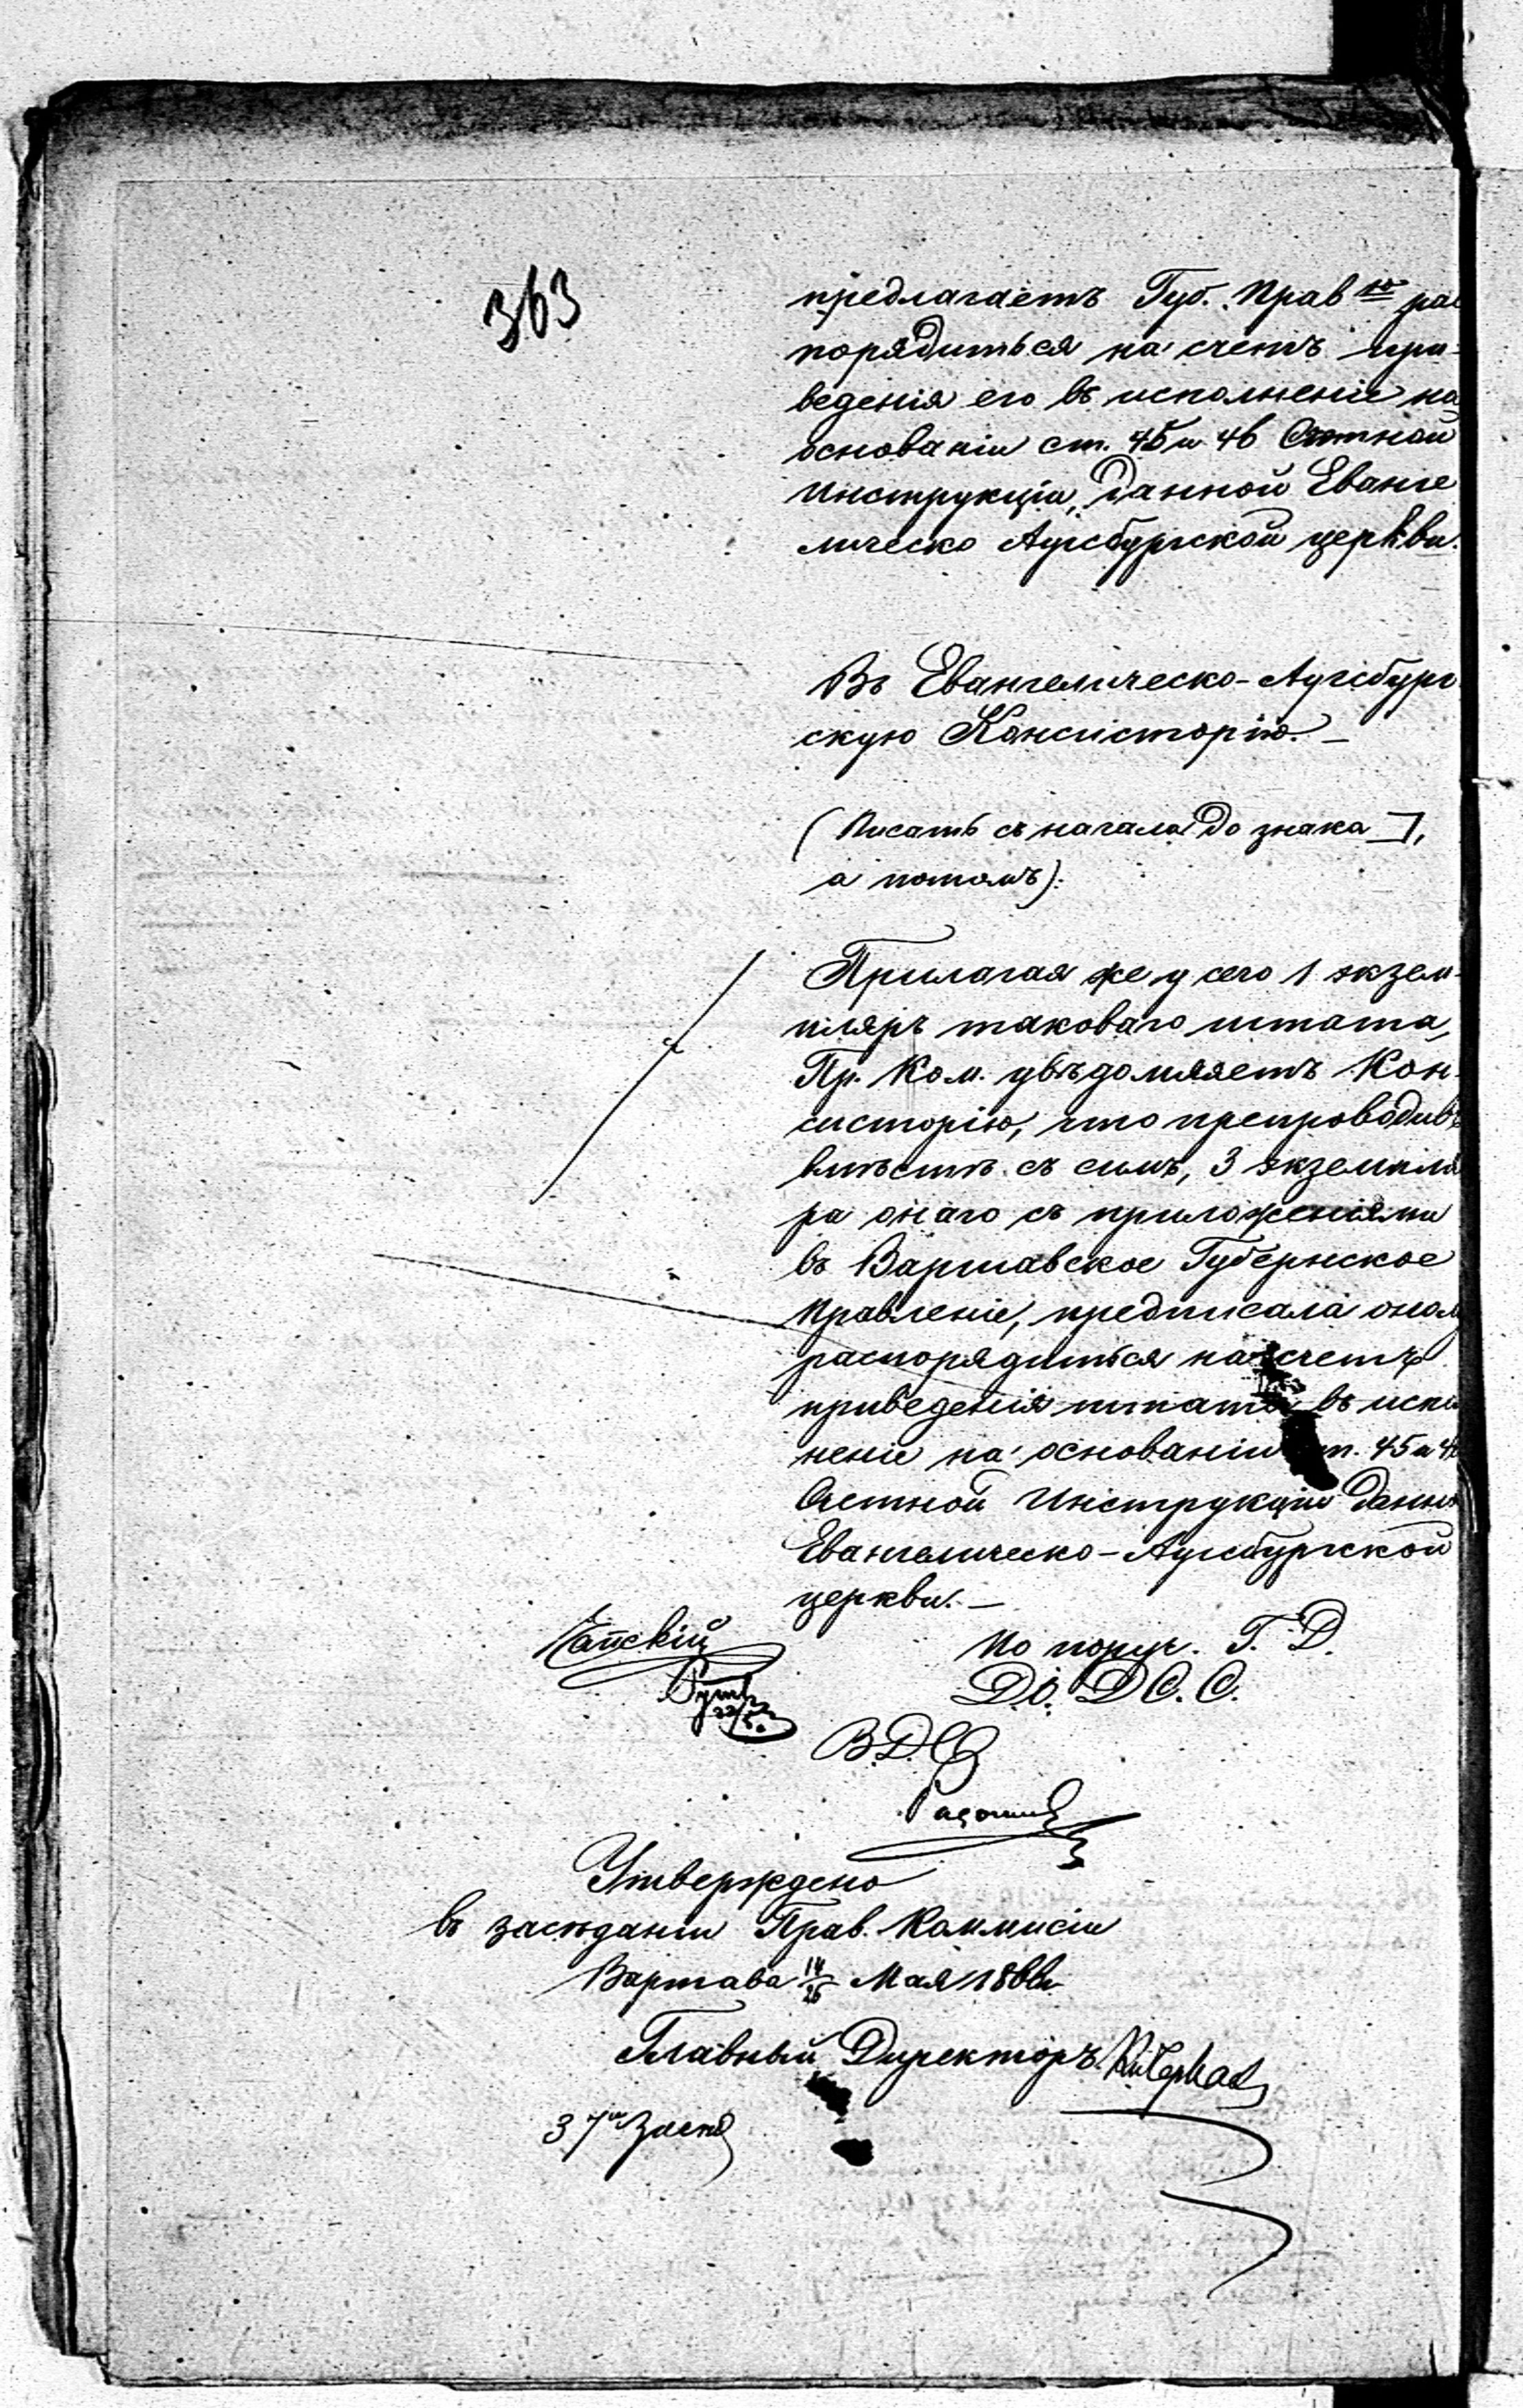 363
предлагаетъ Губ. Прав ю рас
порядиться на счетъ при-
веденія его въ исполненіе на
основаніи ст. 45 и 46 Счетной
Инструкціи, данной Еванге
лическо Аугсбургской церкви.
Въ Евангелическо-Аугсбург
скую Консисторію. —
(Писать съ начала до знака ],
а потомъ):
Прилагая же у сего 1 экзем-
пляръ таковаго штата,
Пр. Ком. увѣдомляетъ Кон-
систорію, что препроводивъ
вмѣстѣ съ симъ, 3 экземпля
ра онаго съ приложеніями
въ Варшавское Губернское
Правленіе, предписала оному
распорядиться на счетъ
приведенія штата въ испол
неніе на основаніи ст. 45 и 4
Счетной Инструкціи данной
Евангелическо-Аугсбургской
церкви. —
По поруч. Г. Д.
Д. С. С.
В. Д.
Утверждено
въ засѣданіи Прав. Коммисіи
Варшава 14/26 Мая 1866
Главный Директоръ
37 Засѣд